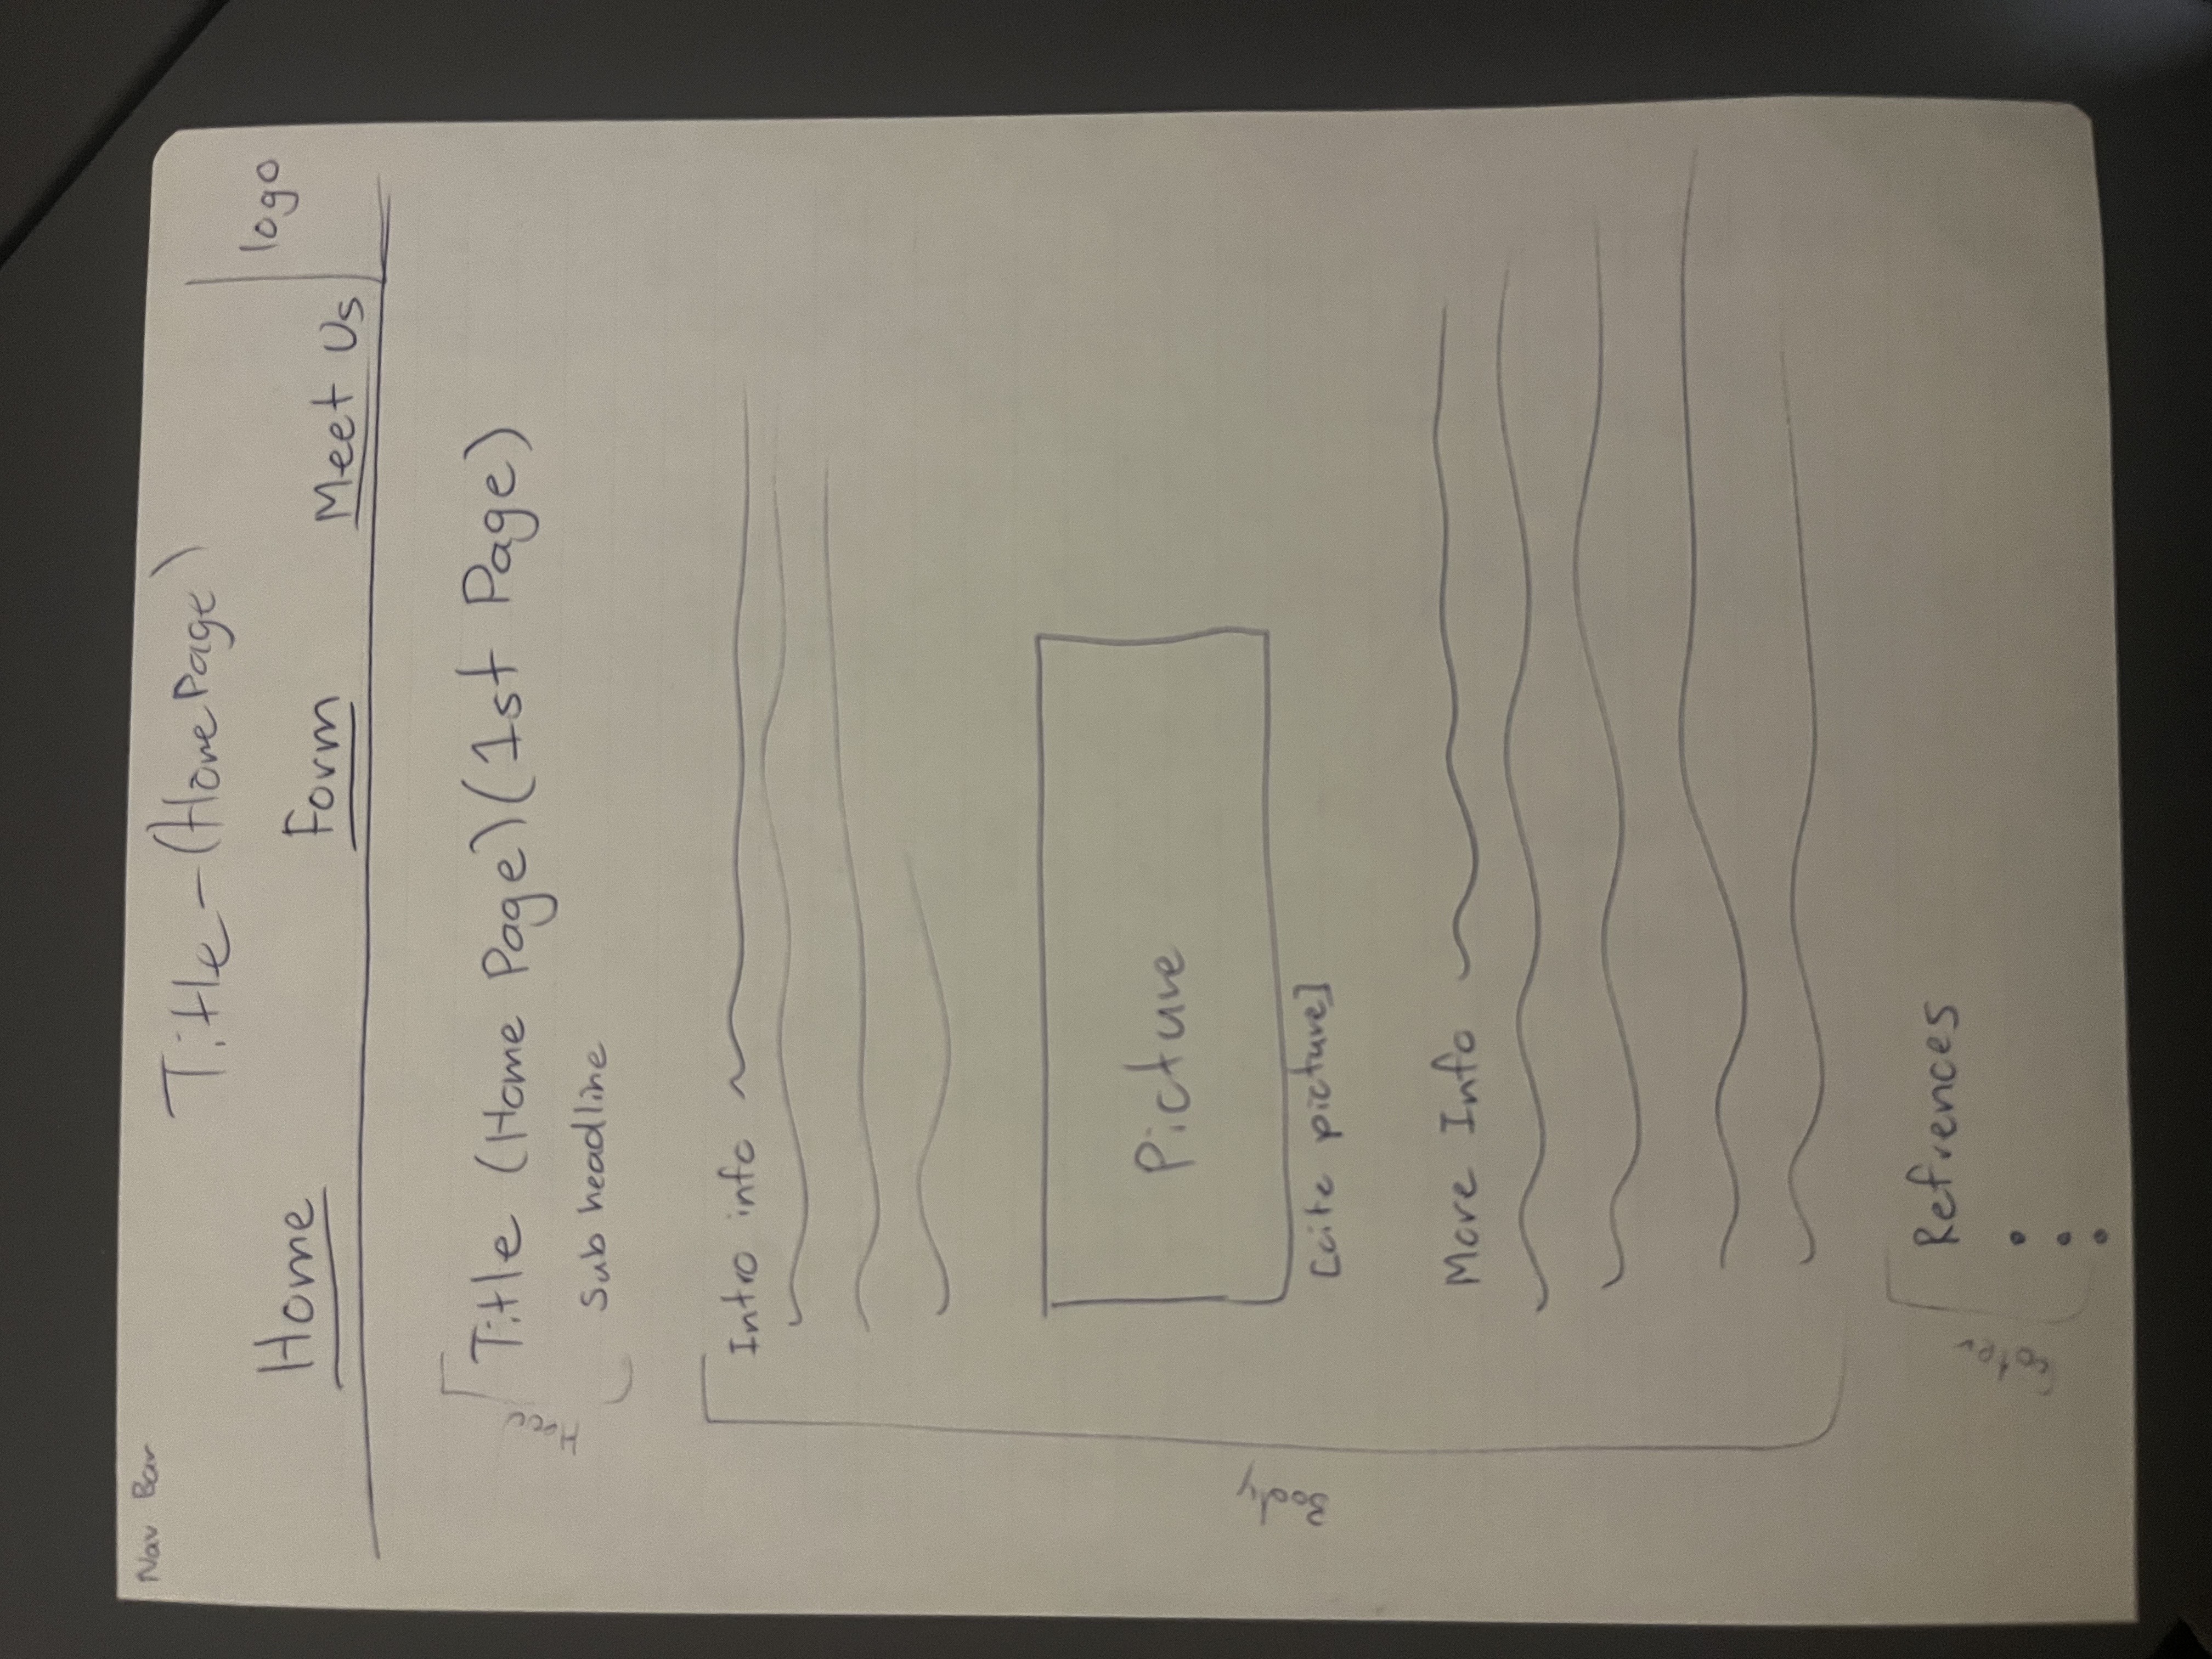 Nav Bar
Title-(HomePage)
logo
Home Form Meet Us
Title (Home Page)(1st Page)
Sub headline
Intro info
Picture
Body
[cite picture]
More Info
Refrences
Footer